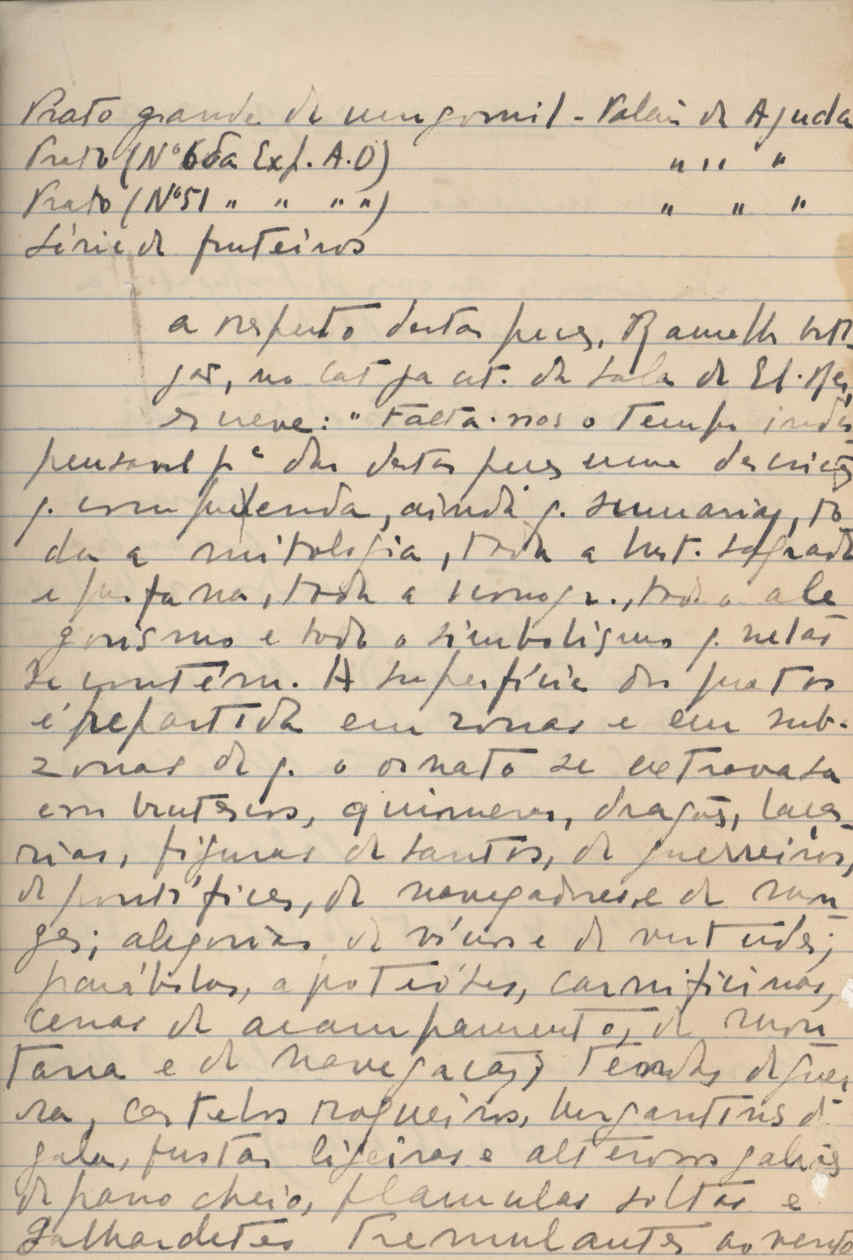 Prato grande de um gomil - Palac. de Ajuda
Prato (Nº 66a Exp. A.O) " " "
Prato (Nº 51 " " " ") " " "
Série de fruteiros
a respeito destas peças, Ramalho Orti-
gão, no Cat. já cit. da Sala de El-Rei,
escreve: "Falta-nos o tempo indis
pensavel pª dar destas peças uma descrição
q. comprenda, ainda q. sumaria, to
da a mitologia, toda a hist. sagrada
e profana, toda a iconogr., todo o ale
gorismo e todo o simbolismo q. nelas
se contém. A superfície dos pratos
é repartida em zonas e em sub-
zonas de q. o ornato se extravasa
em brutescos, quimeras, dragões, lace-
rias, figuras de santos, de guerreiros,
de pontífices, de navegadores e de mon
ges; alegorias de vícios e de virtudes;
parábolas, apoteóses, carnificinas,
cenas de acampamento, de mon
taria e de navegação; tendas de guer
ra, castelos roqueiros, bergantins de
gala, fustas ligeiras e alterosos galeões
de pano cheio, flamulas soltas e
galhardetes tremulantes ao vento